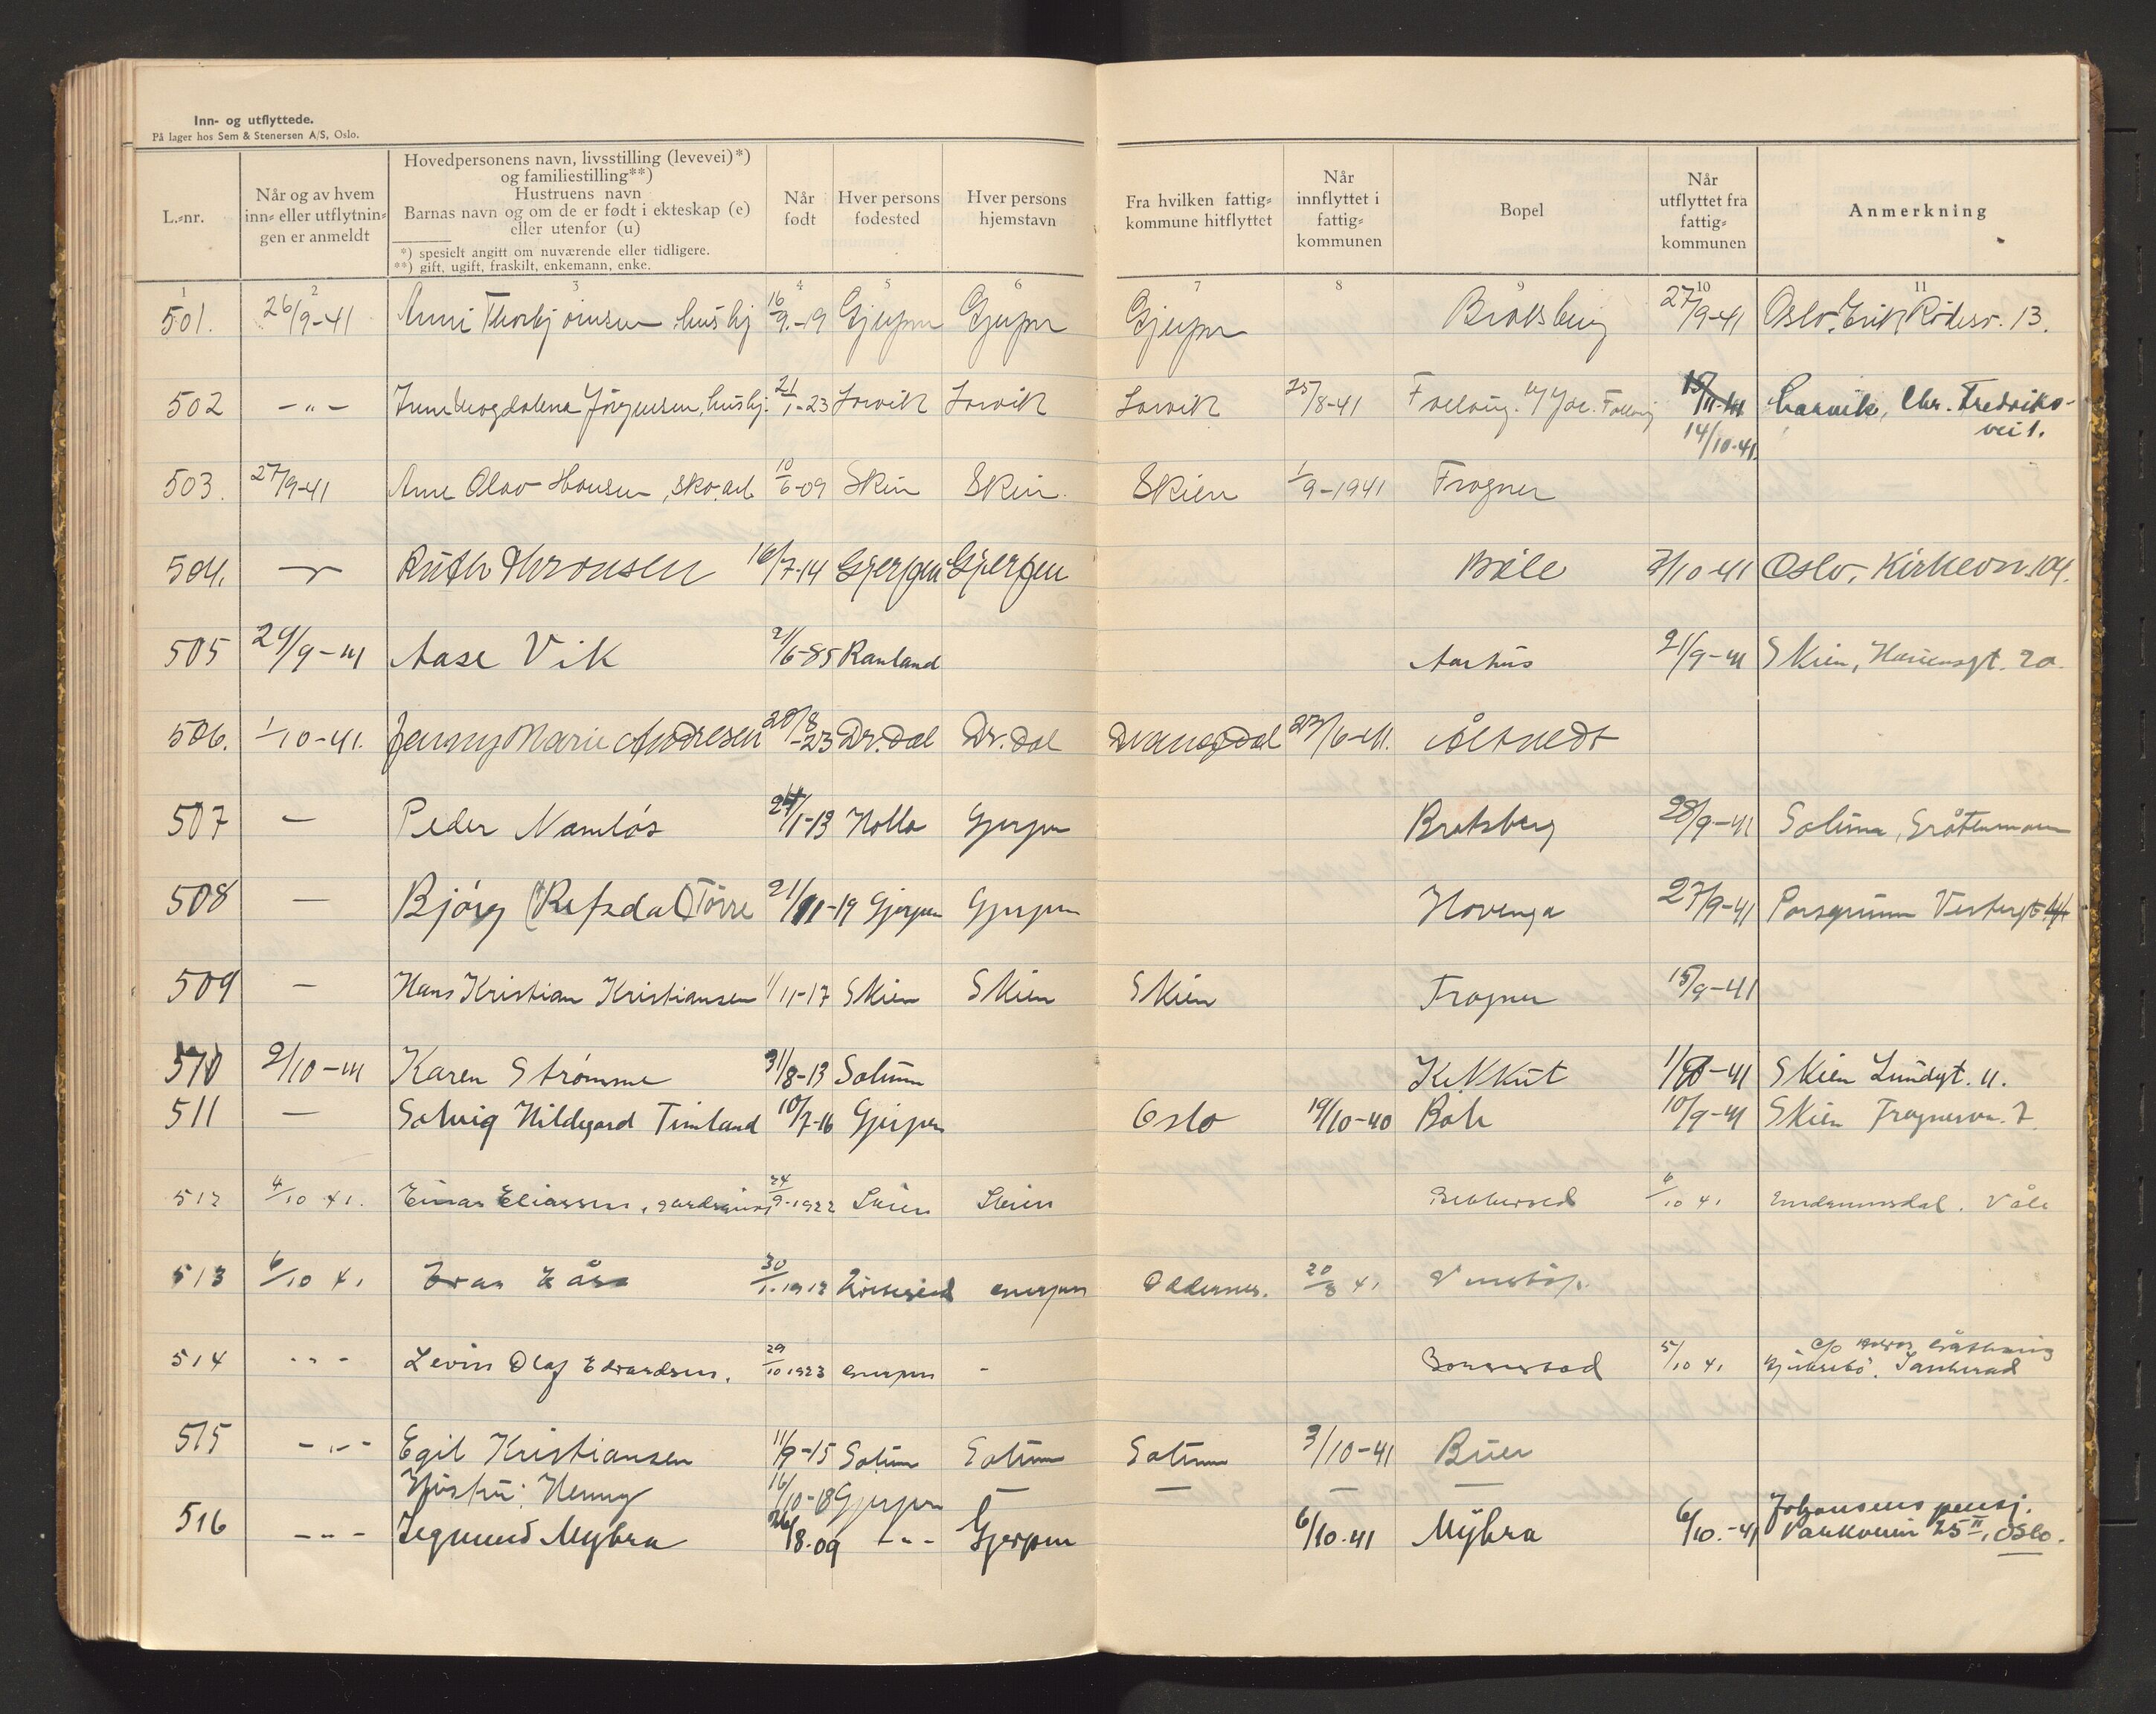 Inn- og utflyttede.
På lager hos Sem & Stenersen A/S, Oslo.
L.-nr.
Når og av hvem inn- eller utflytningen er anmeldt
Hovedpersonens navn, livsstilling (levevei)*)
og familiestilling**)
Hustruens navn
Barnas navn og om de er født i ekteskap (e)
eller utenfor (u)
*) spesielt angitt om nuværende eller tidligere.
**) gift, ugift, fraskilt, enkemann, enke.
Når født
Hver persons fødested
Hver persons hjemstavn
Fra hvilken fattigkommune hitflyttet
Når innflyttet i fattigkommunen
Bopel
Når utflyttet fra fattigkommunen
Anmerkning
1 2 3 4 5 6 7 8 9 10 11
501. 26/9-41 Anni Thorbjørnsen hushj 16/9-19 Gjerpen Gjerpen Gjerpen Bratsberg 27/9-41 Oslo, Erik Rødesv. 13.
502 -"- Jørgensen, hushj. 21/1-23 Larvik Larvik Larvik 25/8-41 15/11-41 Larvik, Chr. Fredriks-
14/10-41 vei 1.
503. 27/9-41 Arne Olav Hansen, sko.arb 10/6-09 Skien Skien Skien 1/9-1941 Frogner
504. Ruth Thronsen 16/7-14 Gjerpen Gjerpen Bøle 2/10-41 Oslo, Kirkevn. 104.
505 29/9-41 Aase Vik 21/6-85 Rauland Aarhus 21/9-41 Skien, Hansensgt. 2a.
506. 1/10-41. Jenny Marie Andresen 28/8-23 Dr.dal Dr.dal Drangedal 23/6-41. Åltvedt
507 — Peder Namløs 24/1-13 Holla Gjerpen Bratsberg 28/9-41 Solum, Gråtenmoen
508 — Bjørg (Refsdal) Tørre 21/11-19 Gjerpen Gjerpen Hovenga 27/9-41 Porsgrunn Vestregt. 44
509 — Hans Kristian Kristiansen 1/11-17 Skien Skien Skien Frogner 15/9-41
510 2/10-41 Karen Strømme 31/8-13 Solum Kikkut 1/10-41 Skien Lundgt. 11.
511 — Solveig Hildegard Timland 10/7-16 Gjerpen Oslo 19/10-40 Bøle 10/9-41 Skien Frognervn. 7
512 4/10 41. Einar Eliassen, 24/9-1922 Skien Skien 6/10 41 Våle
513 6/10 41 30/1-1912 Gjerpen Oddernes. 20/8 41
514 -"- Levin Olaf Edvardsen. 29/10 1923 Gjerpen - 5/10 41 c/o
Sauherad
515 -"- Egil Kristiansen 11/9-15 Solum Solum Solum 3/10-41 Buer
Hustru: Henny 16/10-18 Gjerpen — — — —
516 -"- Segmund Myhra 26/8-09 -"- Gjerpen 6/10-41 Myhra 6/10-41 Johansens pensj.
Parkveien 25 II, Oslo.